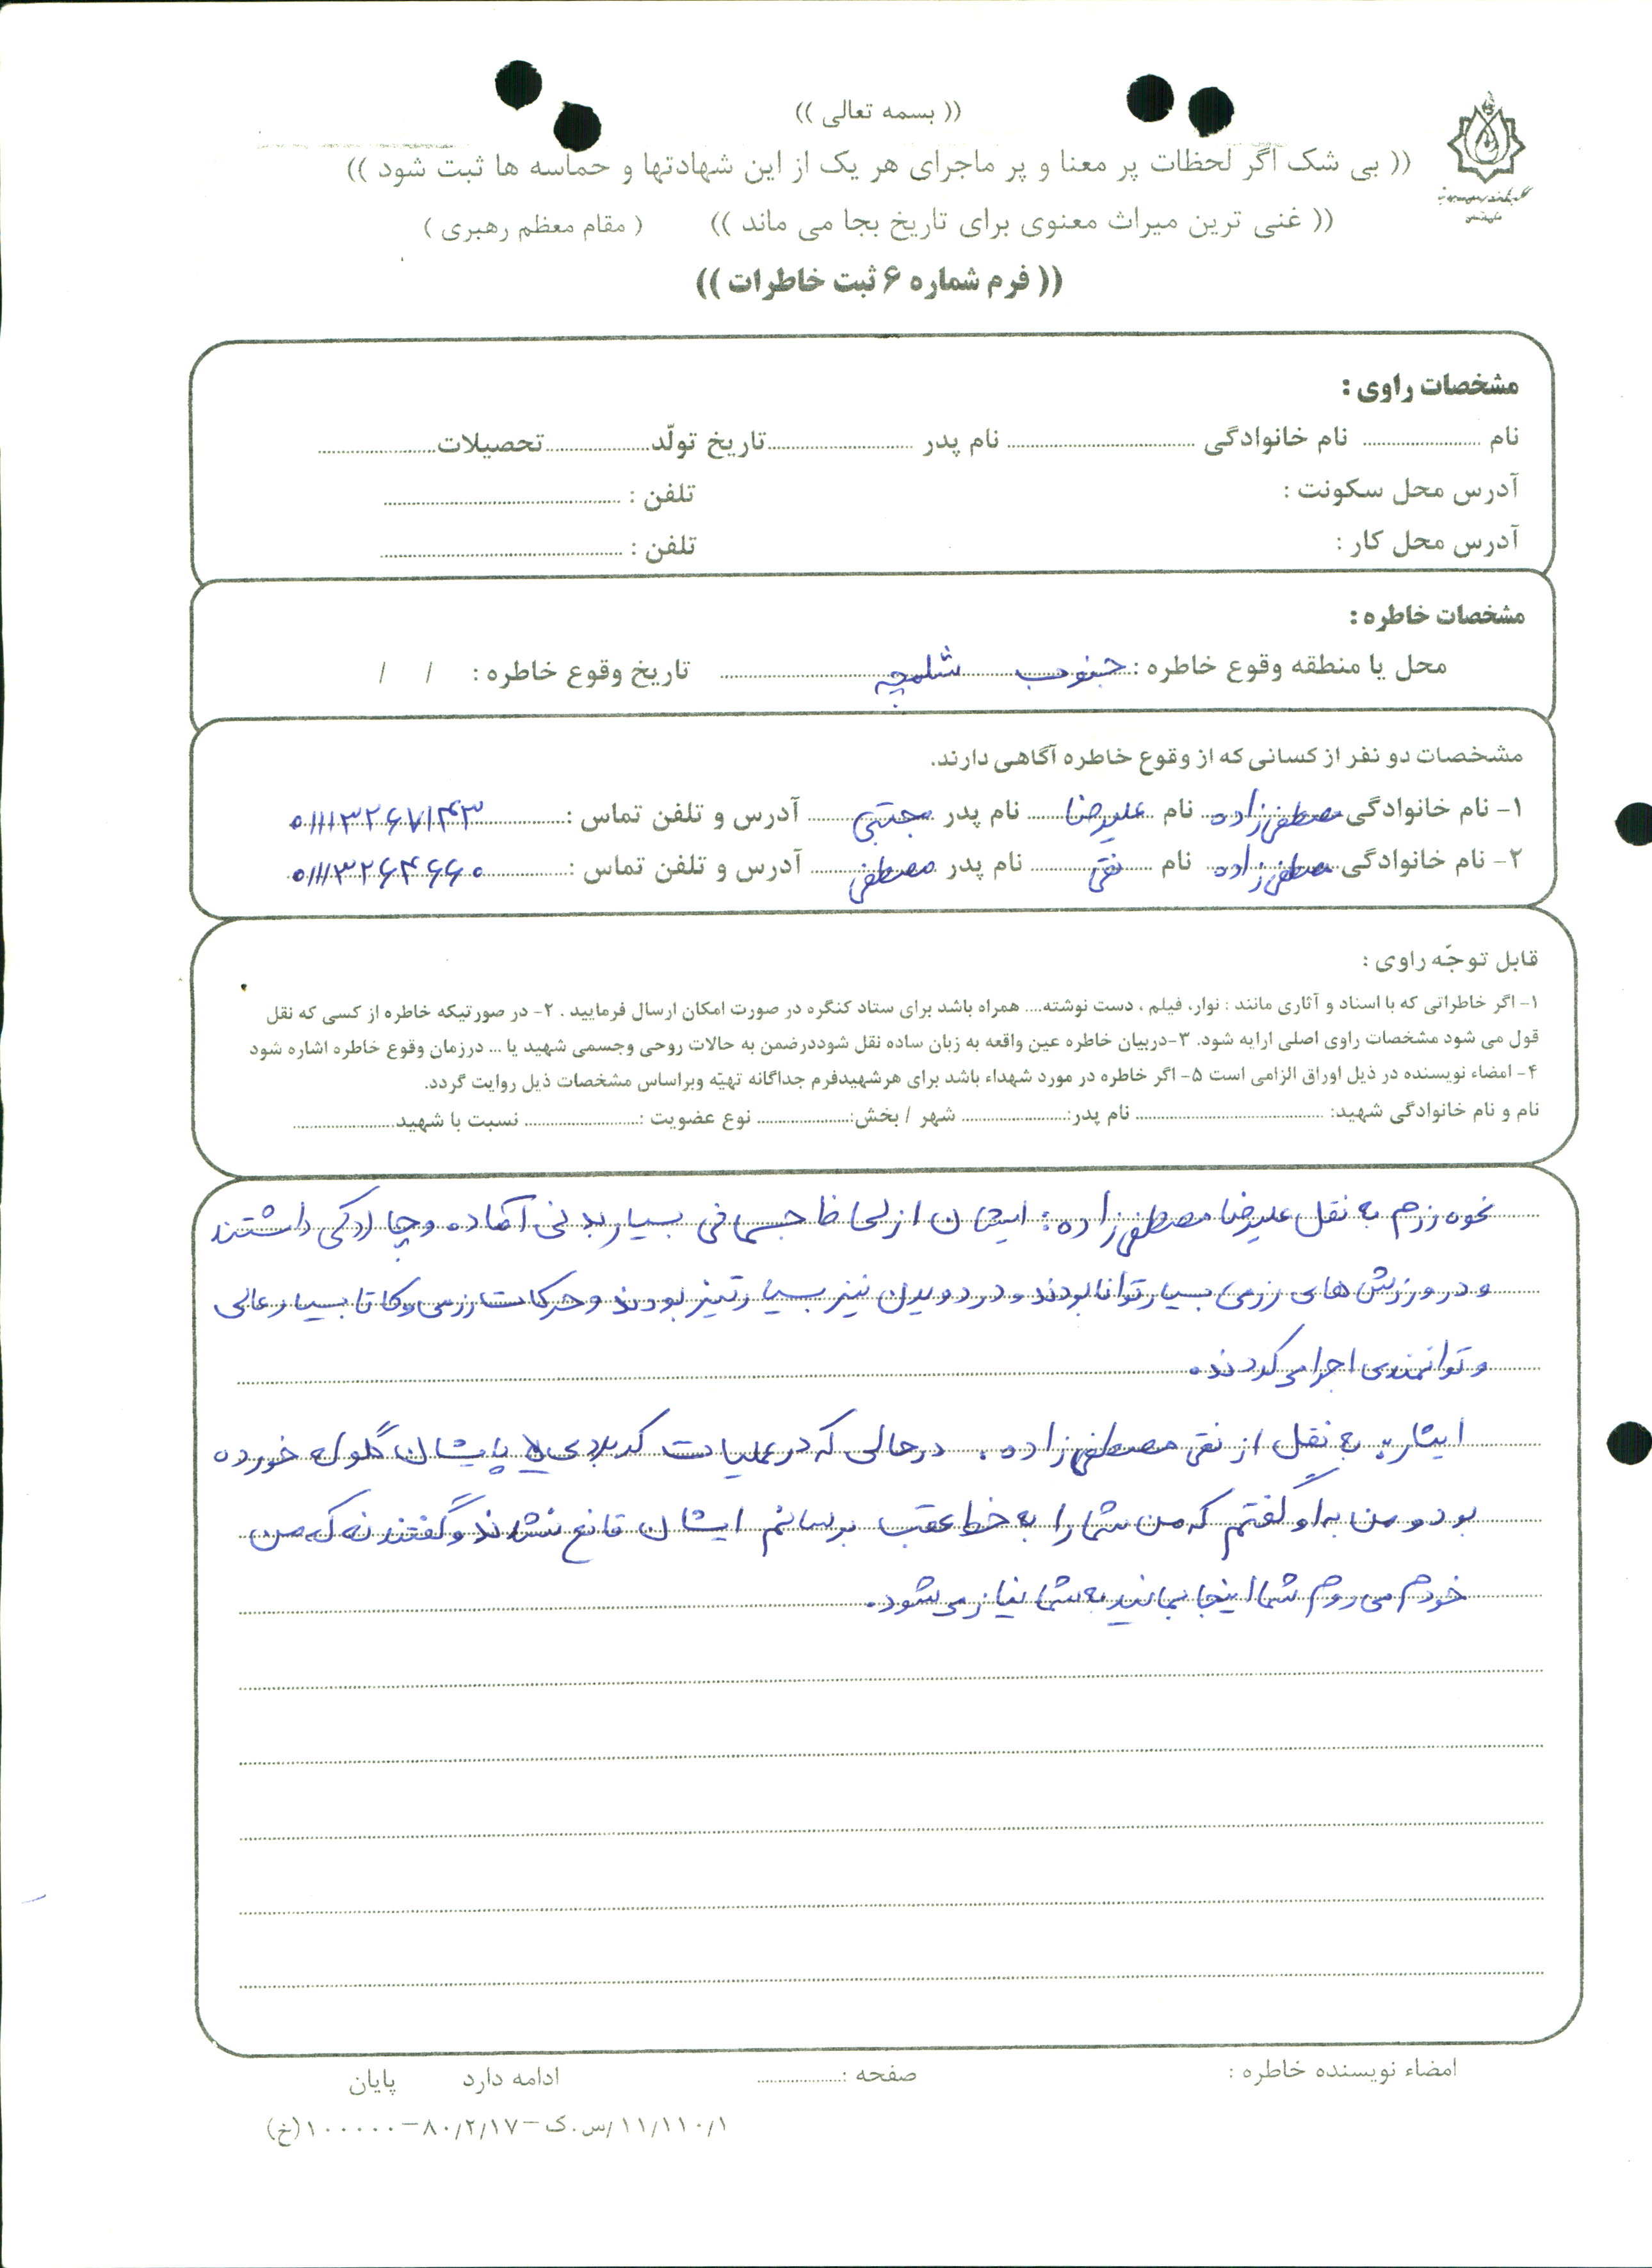 (( بسمه تعالی ))
(( بی شک اگر لحظات پر معنا و پر ماجرای هر یک از این شهادتها و حماسه ها ثبت شود ))
(( غنی ترین میراث معنوی برای تاریخ بجا می ماند )) ( مقام معظم رهبری )
(( فرم شماره ۶ ثبت خاطرات ))
مشخصات راوی :
نام .......... نام خانوادگی .......... نام پدر .......... تاریخ تولّد .......... تحصیلات ..........
آدرس محل سکونت : تلفن : ..........
آدرس محل کار : تلفن : ..........
مشخصات خاطره :
محل یا منطقه وقوع خاطره : جنوب شلمچه .......... تاریخ وقوع خاطره : / /
مشخصات دو نفر از کسانی که از وقوع خاطره آگاهی دارند.
۱- نام خانوادگی مصطفی زاده نام علیرضا نام پدر مجتبی آدرس و تلفن تماس : ۰۱۱۱۳۲۶۷۱۴۳
۲- نام خانوادگی مصطفی زاده نام نقی نام پدر مصطفی آدرس و تلفن تماس : ۰۱۱۱۳۲۶۴۶۶۰
قابل توجّه راوی :
۱- اگر خاطراتی که با اسناد و آثاری مانند : نوار، فیلم ، دست نوشته.... همراه باشد برای ستاد کنگره در صورت امکان ارسال فرمایید . ۲- در صورتیکه خاطره از کسی که نقل
قول می شود مشخصات راوی اصلی ارایه شود. ۳-دربیان خاطره عین واقعه به زبان ساده نقل شوددرضمن به حالات روحی وجسمی شهید یا ... درزمان وقوع خاطره اشاره شود
۴- امضاء نویسنده در ذیل اوراق الزامی است ۵- اگر خاطره در مورد شهداء باشد برای هرشهیدفرم جداگانه تهیّه وبراساس مشخصات ذیل روایت گردد.
نام و نام خانوادگی شهید: .......... نام پدر: .......... شهر / بخش: .......... نوع عضویت : .......... نسبت با شهید ..........
نحوه رزم به نقل علیرضا مصطفی زاده : ایشان از لحاظ جسمانی بسیار بدنی آماده و چابکی داشتند
و در ورزش های رزمی بسیار توانا بودند و در دویدن نیز بسیار تیز بودند و حرکات رزمی و کاتا بسیار عالی
و توانمندی اجرا می کردند.
ایثار : به نقل از نقی مصطفی زاده . درحالی که در عملیات کربلای پایشان گلوله خورده
بود و من به او گفتم که من شما را به خط عقب برسانم ایشان قانع نشدند و گفتند نه که من
خودم می روم شما اینجا بمانید به شما نیاز می شود.
امضاء نویسنده خاطره : صفحه : .......... ادامه دارد پایان
۱۱/۱۱۰/۱/س.ک-۸۰/۲/۱۷-۱۰۰۰۰۰(خ)